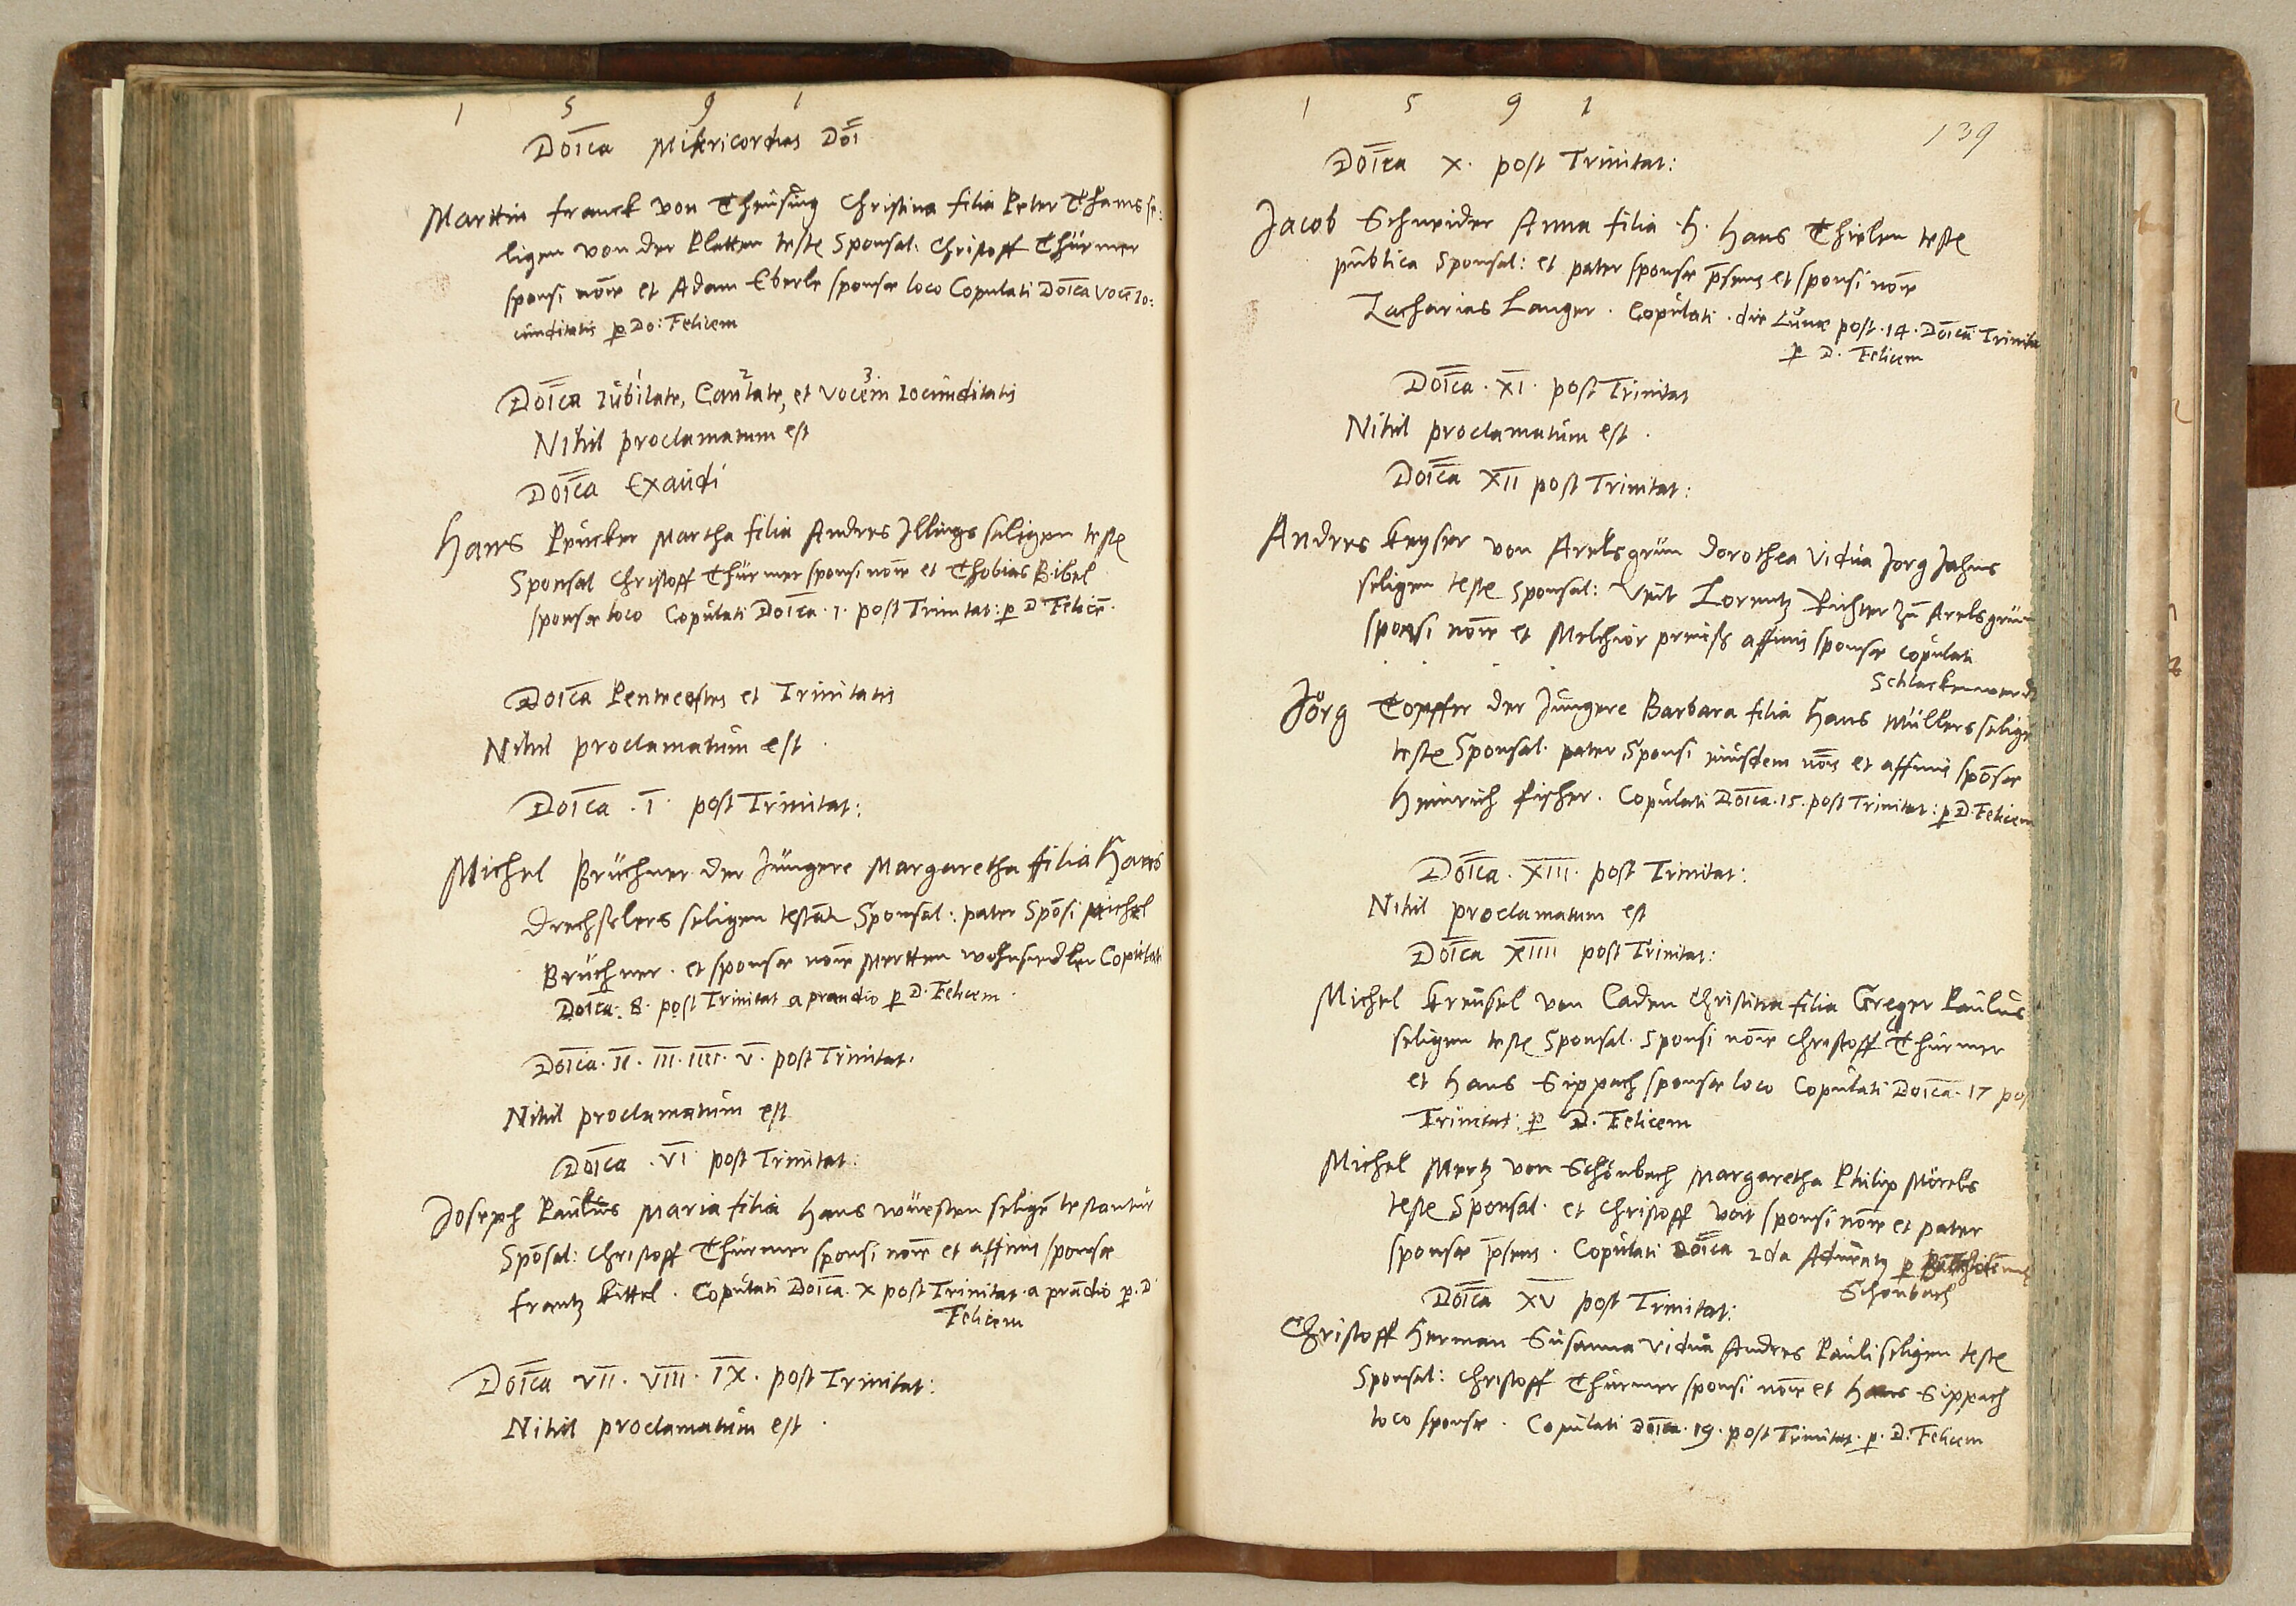 1 5 9 1
Doīca Misericordias Doī
Martin Franck von Theusing Christina filia Peter Thams se:
ligen von der Platten teste Sponsal: Christoff Thürmer
sponsi noīe et Adam Eberle sponsae loco Copulati Doīca Vocē Io:
cunditatis p Do: Felicem
Doīca Iubilate, Cantate, et Vocem Iocunditatis
1 2 3
Nihil proclamatum est
Doīca Exaudi
Hans Peucker Martha filia Andres Illings seligen teste
Sponsal Christoff Thürmer sponsi noīe et Thobias Bibel
sponsae loco Copulati Doīca 1. post Trinitat: p D Felicē.
Doīca Pentecostes et Trinitatis
Nihil proclamatum est.
Doīca . I . post Trinitat:
Michel Brüchner der Jüngere Margaretha filia Hans
Drechslers seligen testāt Sponsal: pater Spōsi Michel
Brüchner. et sponsae noīe Mertten wohnsiedler Copulati
Doīca. 8. post Trinitat a prandio p D. Felicem.
Doīca. II. III. IIII. V. post Trinitat.
Nihil proclamatum est
Doīca . VI post Trinitat:
Joseph Paulus Maria filia Hans wüesten seligē testantur
Spōsal: Christoff Thürmer sponsi noīe et affinis sponsae
Frantz Kittel. Copulati Doīca. X post Trinitat. a prādio p. D
Felicem
Doīca VII. VIII. IX. post Trinitat:
Nihil proclamatum est.
1 5 9 1
139
Doīca X. post Trinitat:
Jacob Schneider Anna filia H. Hans Thielen teste
publica Sponsal: et pater sponsae p̄sens et sponsi noīe
Zacharias Langer. Copulati. die Lunae post. 14. Doīcā Trinita
p D. Felicem
Doīca. XI. post Trinitat
Nihil proclamatum est.
Doīca XII post Trinitat:
Andres Keyser von Arlesgrün Dorothea Vidua Jorg Jahns
seligen teste Sponsal: Veit Lorentz Richter zu Arlesgrün
sponsi noīe et Melchior preuss affinis sponsae copulati
Schlackenwerdt
Jörg Topffer der Jüngere Barbara filia Hans Müllers selige
teste Sponsal. pater Sponsi eiusdem noīs et affinis spōsae
Heinrich Fischer. Copulati Doīca. 15. post Trinitat: p D. Felicem
Doīca. XIII. post Trinitat:
Nihil proclamatum est
Doīca XIIII post Trinitat:
Michel Kreusel von Caden Christina filia Greger Paulus
seligen teste Sponsal. Sponsi noīe Christoff Thürmer
et Hans Sippach sponsae loco Copulati Doīca. 17 pos
Trinitat: p D. Felicem
Michel Mertz von Schönbach Margaretha Philip Mörels
teste Sponsal. et Christoff Voit sponsi noīe et pater
sponsae p̄sens. Copulati Doīca 2da Aduentq p
Schönbach
Doīca XV post Trinitat:
Christoff Herman Susanna Vidua Andres Pauli seligen teste
Sponsal: Christoff Thürmer sponsi noīe et Hans Sippach
loco sponsae. Copulati Doīca. 19. post Trinitat. p. D. Felicem